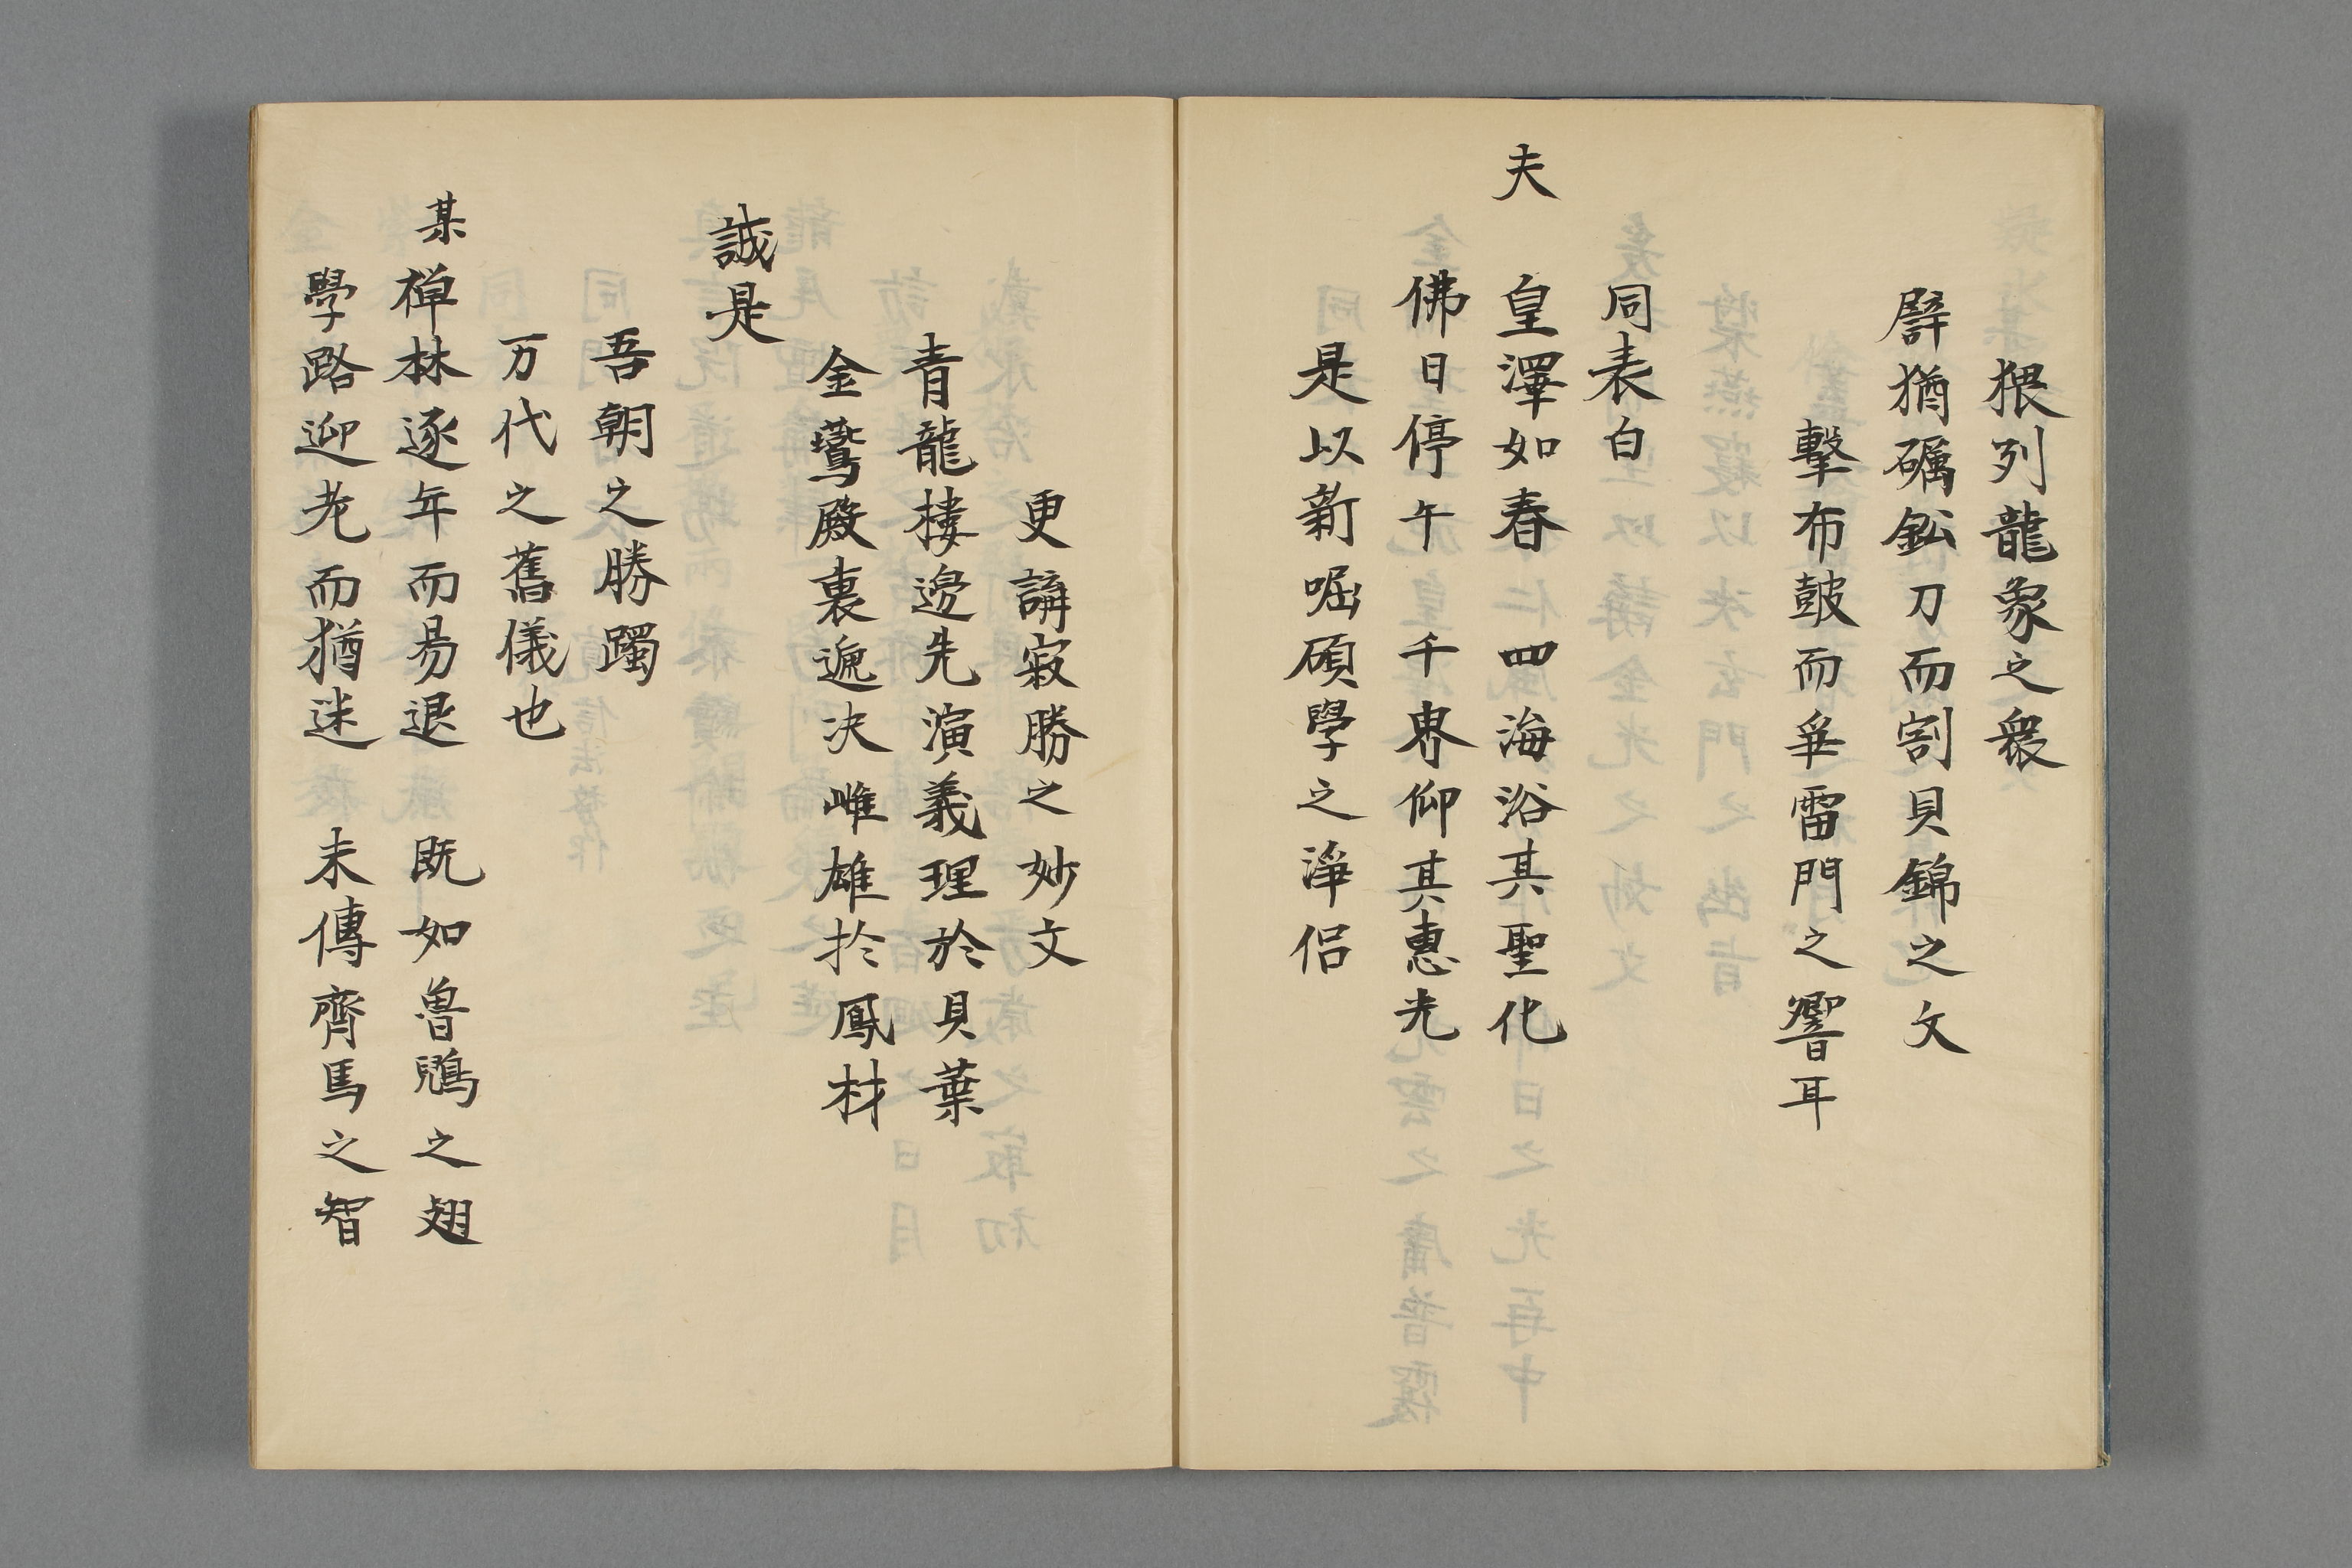 猥列龍象之衆
譬猶礪鈆刀而割貝錦之文
擊布皷而爭雷門之響耳
同表白
夫 皇澤如春 四海浴其聖化
佛日停午 千界仰其惠光
是以新啒碩學之淨侶
更講寂勝之妙文
青龍樓邊先演義理於貝葉
金鸞殿裏遞决雌雄於鳳材
誠是
吾朝之勝躅
万代之舊儀也
某禅林逐年而易退 既如魯鶂之翅
學路迎老而猶迷 未傳齊馬之智